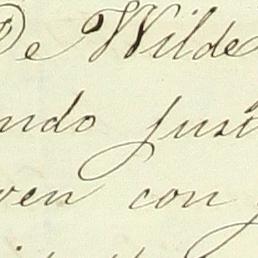 De Wilde
ndo just
ven con